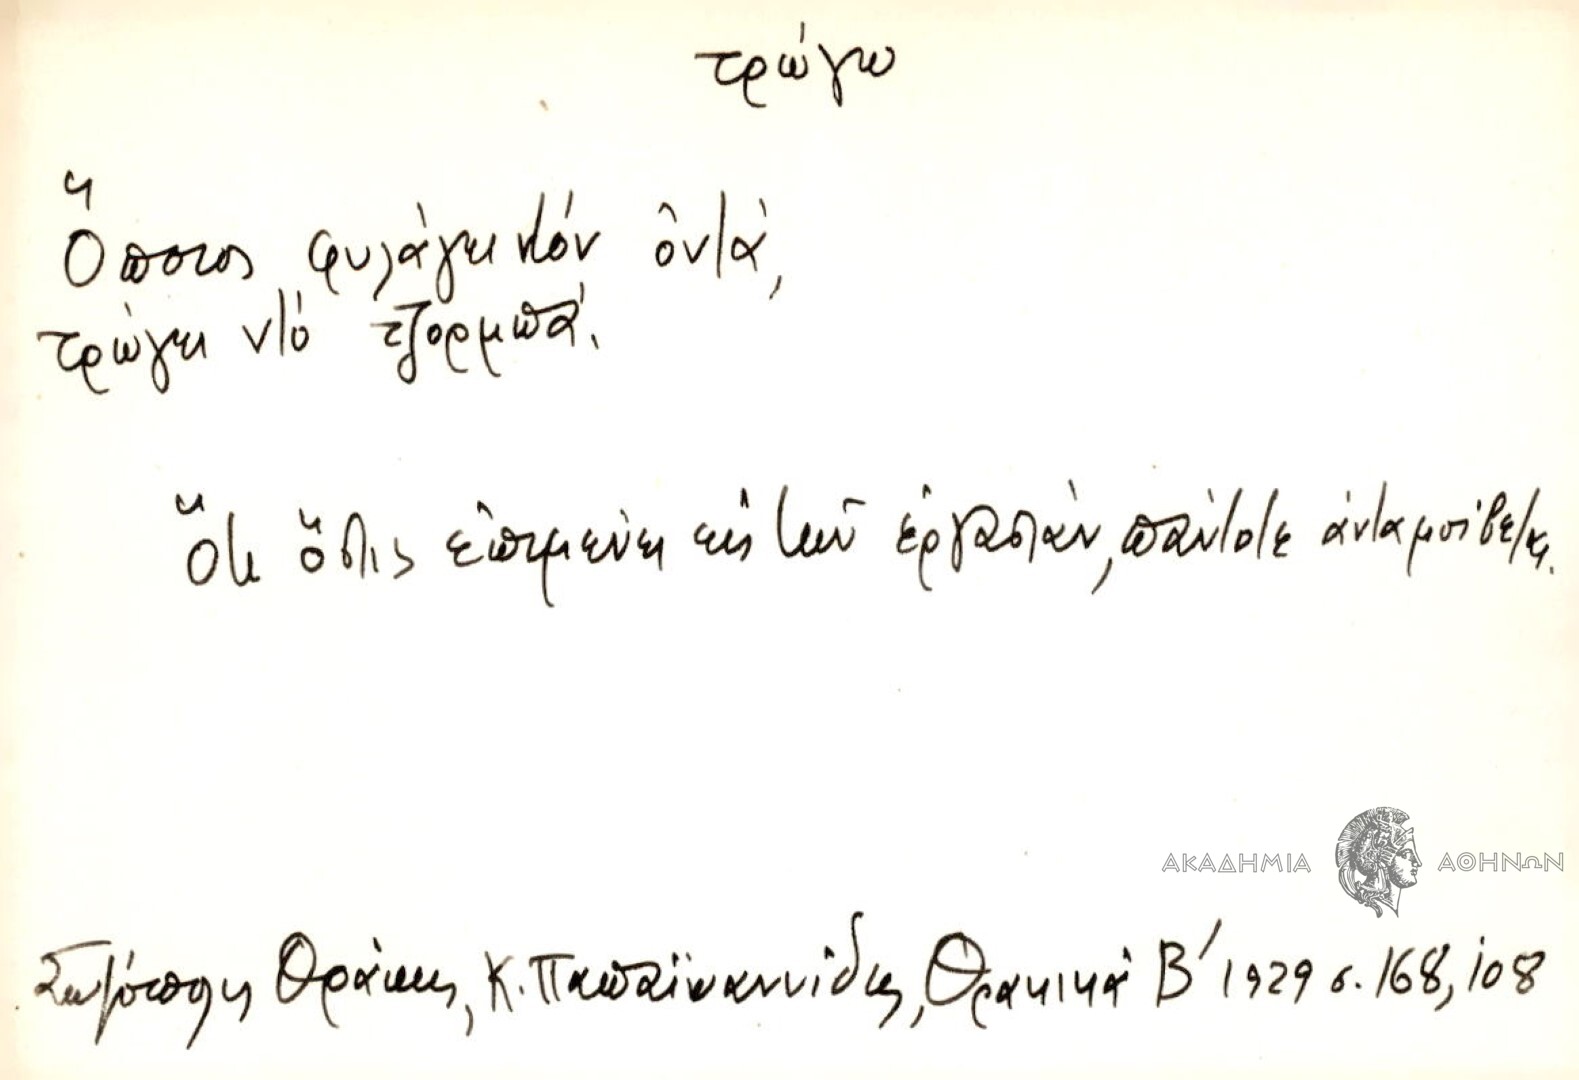 τρώγω
Ὅποιος φυλάγει τόν ὀντά,
τρώγει ντό τζορμπά.
Ὅτι ὅστις ἐπιμένει εἰς τήν ἐργασίαν, πάντοτε ἀνταμοίβεται.
ΑΚΑΔΗΜΙΑ ΑΘΗΝΩΝ
Σωζόπολις Θράκης, Κ. Παπαϊωαννίδης, Θρακικά Β΄ 1929 σ. 168, 108